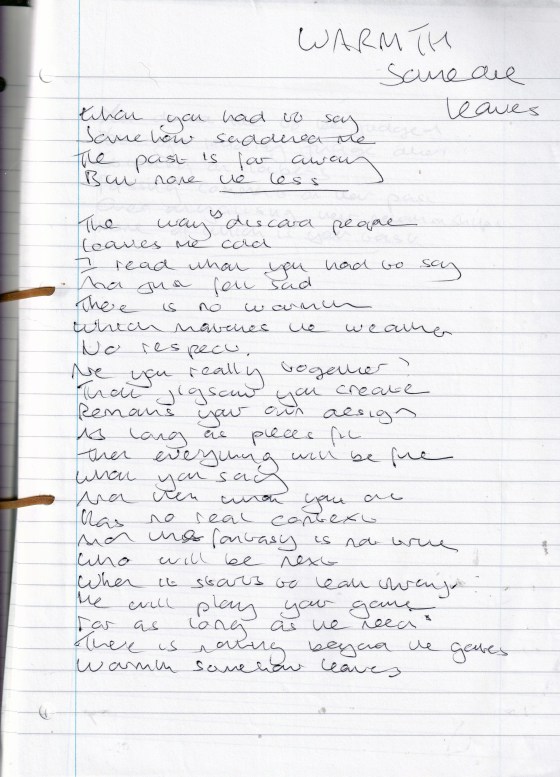 WARMTH
Someone
leaves
What you had to say
Somehow saddened me
The past is far away
But none the less
The way u discard people
Leaves me cold
I read what you had to say
And just felt sad
There is no warmth
Which matches the weather
No respect.
Are you really together?
That jigsaw you create
Remains your own design
As long as pieces fit
Then everything will be fine
What you say
And then what you do
Has no real context
And this fantasy is not true
Who will be next
When it starts to leak through
He will play your game
For as long as he needs
There is nothing beyond the games
Warmth somehow leaves